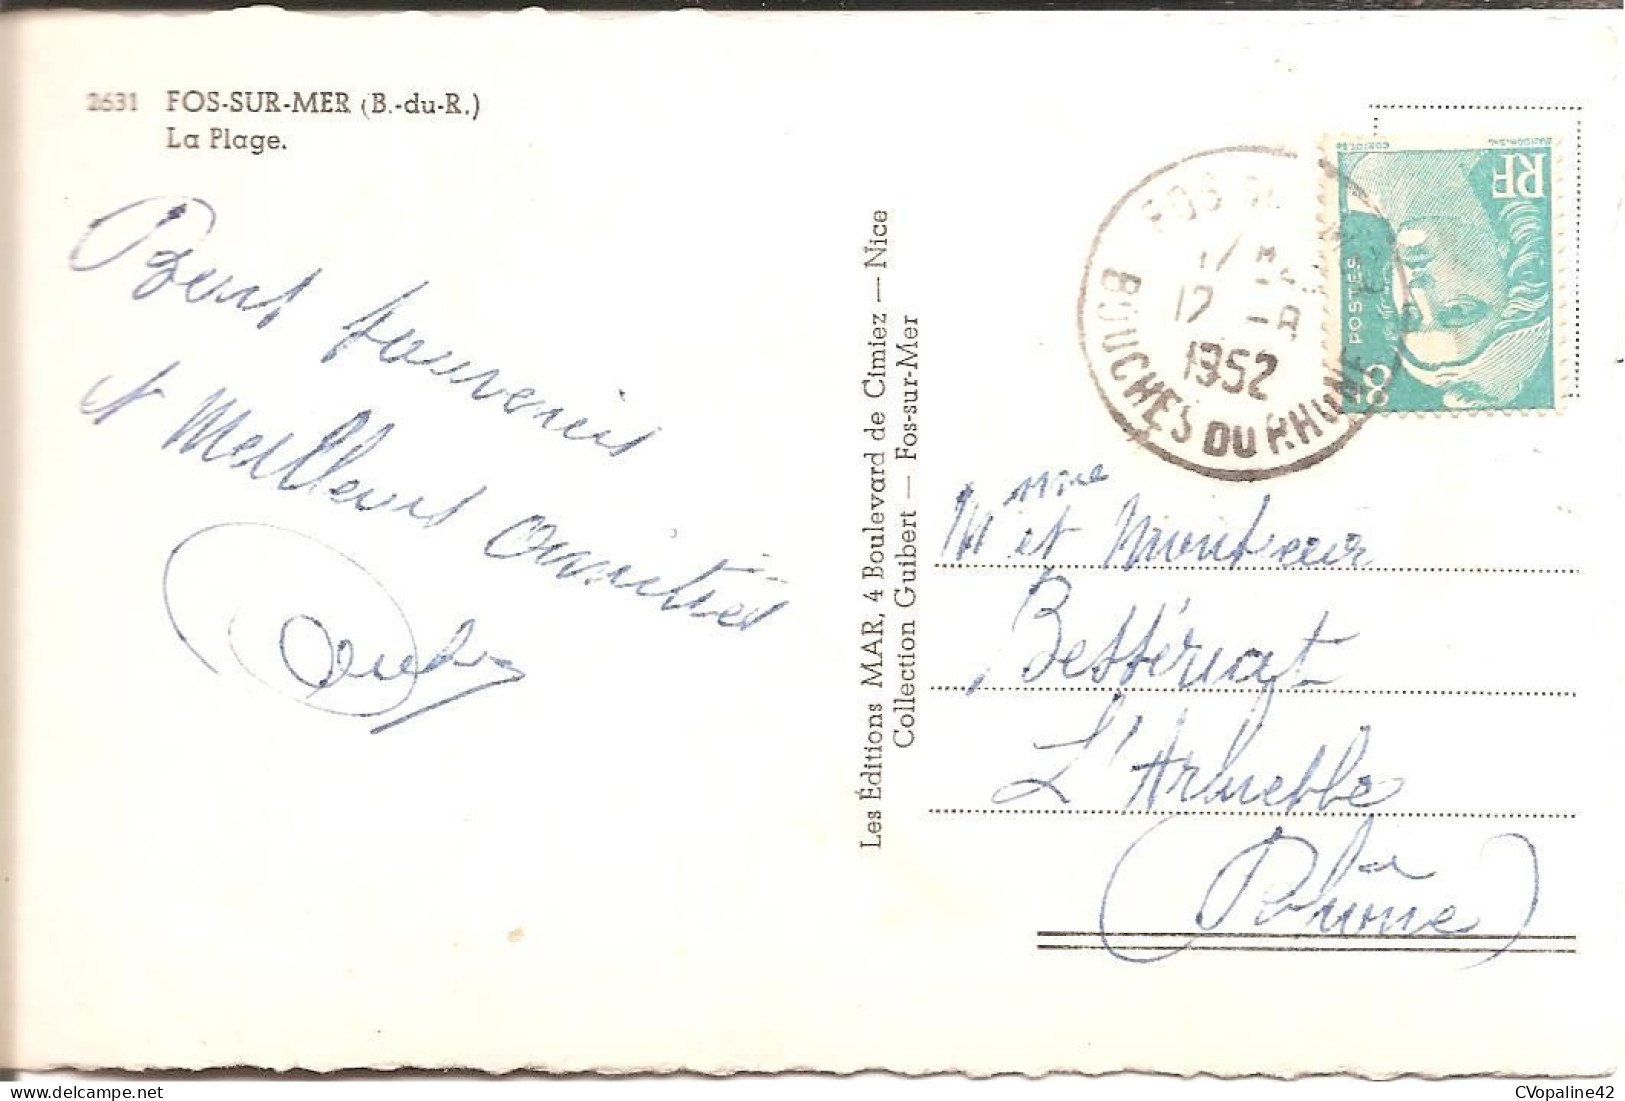 2631 FOS-SUR-MER (B.-du-R.)
La Plage.
Bons souvenirs
et Meilleurs amitiés
Les Éditions MAR, 4 Boulevard de Cimiez — Nice
Collection Guibert — Fos-sur-Mer
FOS SU
17 -8
1952
BOUCHES DU RHONE
RF
POSTES
8F
Mme
M et Monsieur
Besseriat
L'Arbuelle
Rhône
CVopaline42